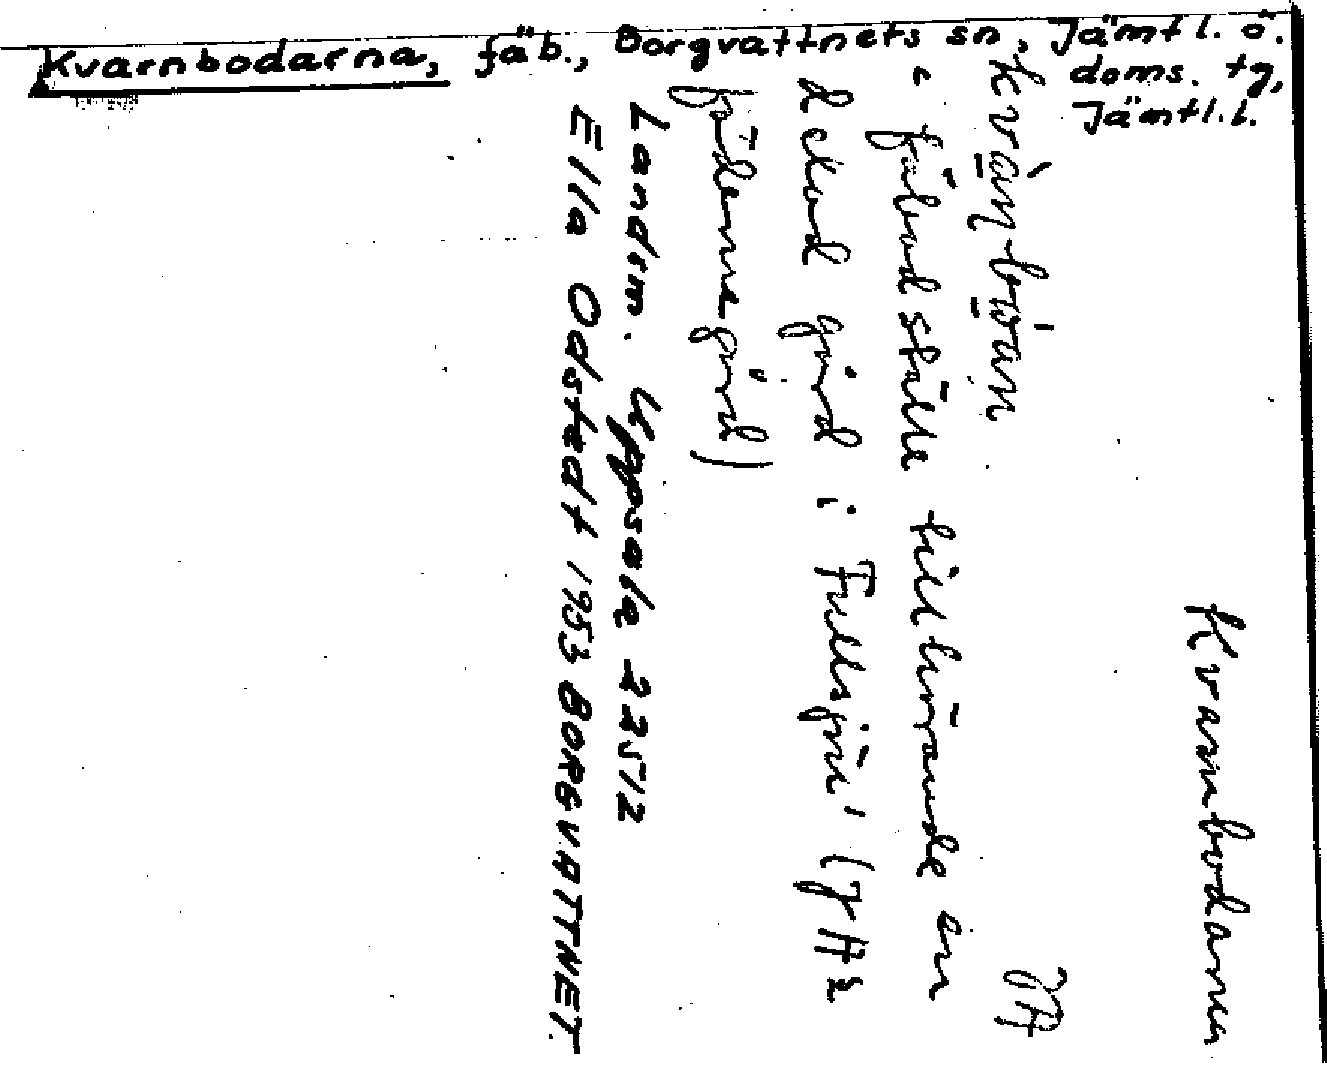 Kvarnbodarna, fäb., Borgvattnets sn, Jämtl. ö.
doms. tg,
Jämtl. l.
Kvarnbodarna
kvàṇbòan JA
= fäbodställe tillhörande en
delad gård i Fullsjön (JA:s
fädernegård)
Landsm. Uppsala 22512
Ella Odstedt 1953 BORGVATTNET